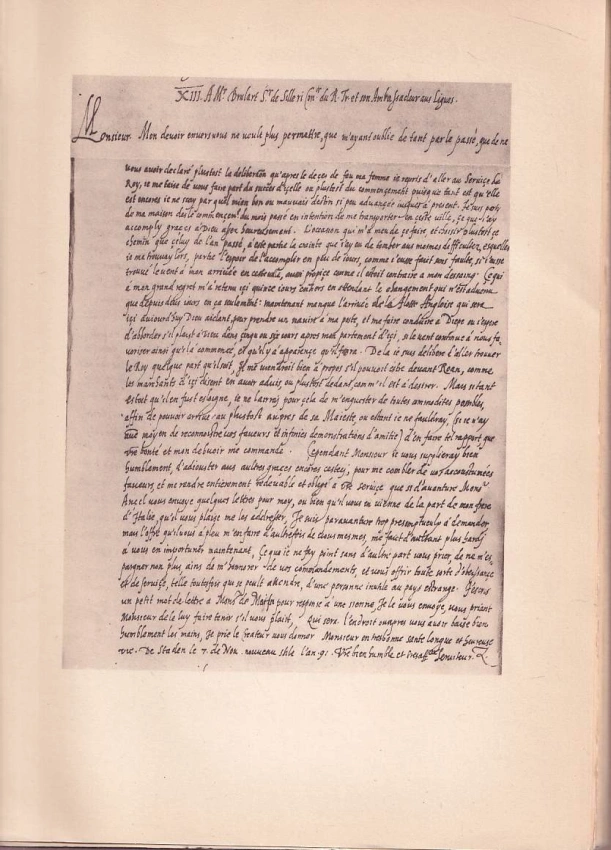 XIII. A Mr Brulart Sr de Silleri Conr du R. Tr. et son Ambassadeur aus Ligues.
Monsieur Mon devoir envers vous ne veule plus permettre, que m'ayant oublié de tant par le passé, que de ne
vous avoir declaré plustost la deliberation qu'apres le deces de feu ma femme ie repris d'aller au Service du
Roy, ie me taise de vous faire part du succes d'icelle ou plustost du commencement puisque tant est qu'elle
est encores ie ne scay par quel mien bon ou mauvais destin si peu advancee iusques à present. Je suis party
de ma maison des le commencement du mois passé en intention de me transporter en ceste ville, ce que i'ay
accomply graces à Dieu assez heureusement. L'occasion qui m'a meu de ce faire, et choisir plustost ce
chemin que celuy de l'an passé, a esté partie la crainte que i'ay eu de tomber aus mesmes difficultez, esquelles
ie me trouvay lors, partie l'espoir de l'accomplir en peu de iours, comme i'eusse fait sans faute, si i'eusse
trouvé le vent à mon arrivée en ce lieu aussi propice comme il estoit contraire a mon desseing. Ce qui
à mon grand regret m'a retenu ici quinze iours entiers en attendant le changement qui n'est advenu
que depuis deus iours en ça seulement: maintenant manque l'arrivée de la flotte Angloise qui sera
ici auiourd'huy Dieu aidant, pour prendre un navire à ma poste, et me faire conduire à Diepe ou i'espere
d'aborder s'il plaist à Dieu dans cinq ou six iours apres mon partement d'ici, si le vent continue à nous fa,
voriser ainsi qu'il a commencé, et qu'il y a apparence qu'il fera. De la ie suis deliberé d'aller trouver
le Roy quelque part qu'il soit, Il me viendroit bien à propos s'il pouvoit estre devant Roan, comme
les marchants d'ici disent en avoir advis, ou plustost dedans, comm'il est a desirer. Mais si tant
estoit qu'il en fust esloigné, ie ne lairray pour cela de m'enquester de toutes commoditez possibles,
affin de pouvoir arriver au plustost aupres de sa Maiesté, ou estant ie ne fauldray, (si ie n'ay
moyen de reconnoistre vos faveurs et infinies demonstrations d'amitié) d'en faire tel rapport que
vre bonté et mon debvoir me commande. Cependant Monsieur ie vous supplieray bien
humblement, d'adiouster aus aultres graces encores cestecy, pour me combler de vos accoustumées
faveurs, et me rendre entierement redevable et obligé à vre service, que si d'avanture Monsr
Ancel vous envoye quelques lettres pour moy, ou bien qu'il vous en vienne de la part de mon frere
d'Italie, qu'il vous plaise me les addresser. Je suis paravanture trop presomptueus à demander
mais l'offre qu'il vous a pleu m'en faire d'aultresfois de vous mesmes, me faict d'aultant plus hardy
à vous en importuner maintenant, Ce que ie ne fay point sans d'aultre part vous prier, de ne m'es,
pargner non plus, ains de m'honorer de vos commandements, et vous offrir toute sorte d'obeissance
et de service, telle toutesfois qui se peult attendre, d'une personne inutile au pays estrange. J'escris
un petit mot de lettre à Monsr de pour response à une sienne, Je le vous envoye, vous priant
Monsieur de la luy faire tenir s'il vous plaist, Qui sera l'endroit ou apres vous avoir baisé bien
humblement les mains, Je prie le Createur vous donner Monsieur en tresbonne santé longue et heureuse
vie. De Staden le 7. de Nov. nouveau stile l'an. 91. Vre bien humble et serviteur.